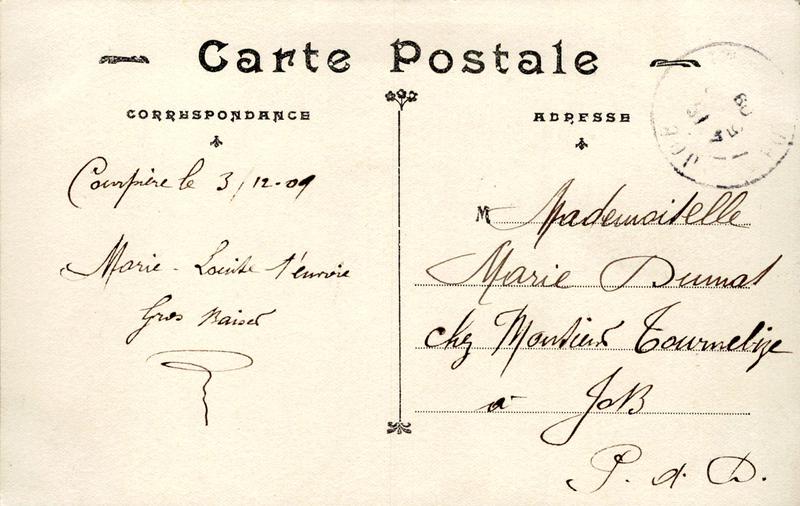 Carte Postale
CORRESPONDANCE
ADRESSE
Courpière le 3/12-09
Marie-Louise t'envoie
Gros Baiser
M Mademoiselle
Marie Dumas
chez Monsieur Tournebize
à JOB
P. d. D.
JOB
09